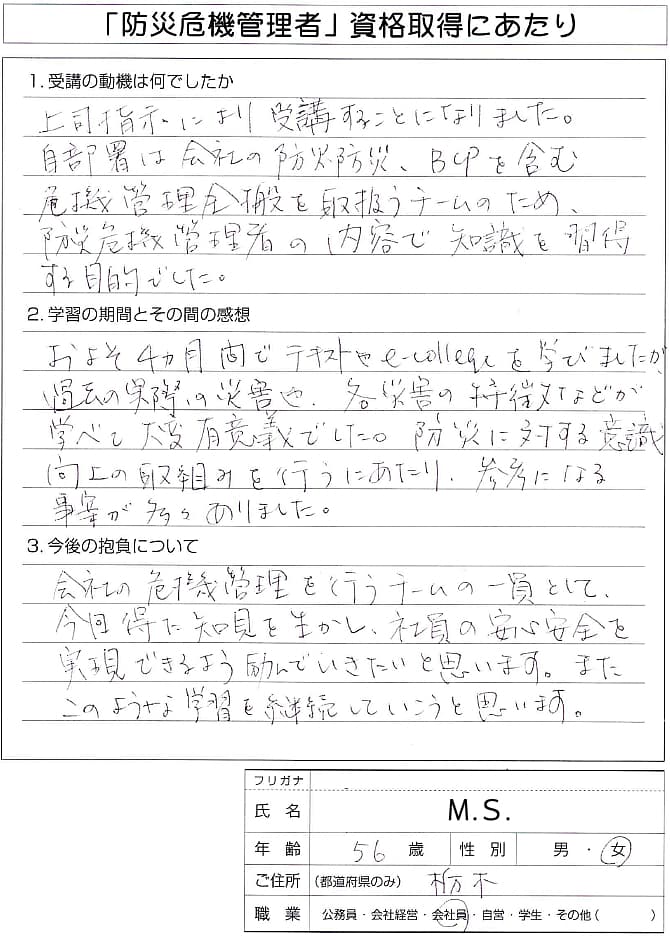 「防災危機管理者」資格取得にあたり
1. 受講の動機は何でしたか
上司指示により受講することになりました。
自部署は会社の防災防災、BCPを含む
危機管理全般を取扱うチームのため、
防災危機管理者の内容で知識を習得
する目的でした。
2. 学習の期間とその間の感想
およそ4カ月間でテキストやe-collegeを学びましたが
過去の実際の災害や、各災害の特徴などが
学べて大変有意義でした。防災に対する意識
向上の取組みを行うにあたり、参考になる
事案が多々ありました。
3. 今後の抱負について
会社の危機管理を行うチームの一員として、
今回得た知見を生かし、社員の安心安全を
実現できるよう励んでいきたいと思います。また
このような学習を継続していこうと思います。
フリガナ
氏名 M.S.
年齢 56 歳 性別 男・女
ご住所 (都道府県のみ) 栃木
職業 公務員・会社経営・会社員・自営・学生・その他( )